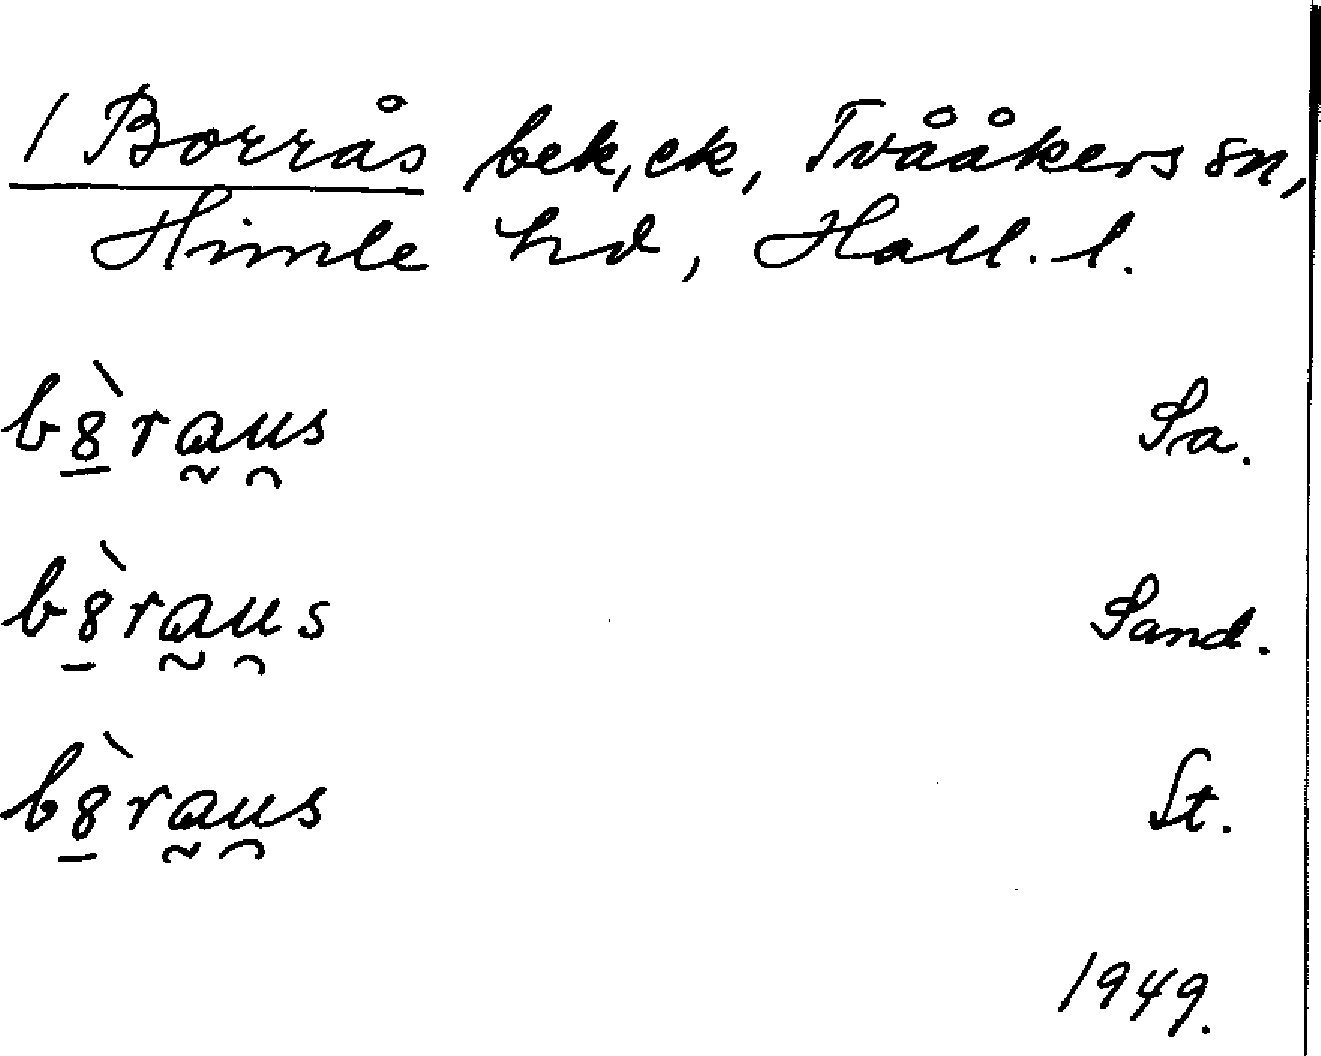 1 Borrås bek, ck, Tvååkers sn,
Himle hd, Hall. l.
b8̲̀ra̰u̯s Sa.
b8̲̀ra̰u̯s Sand.
b8̲̀ra̰u̯s St.
1949.